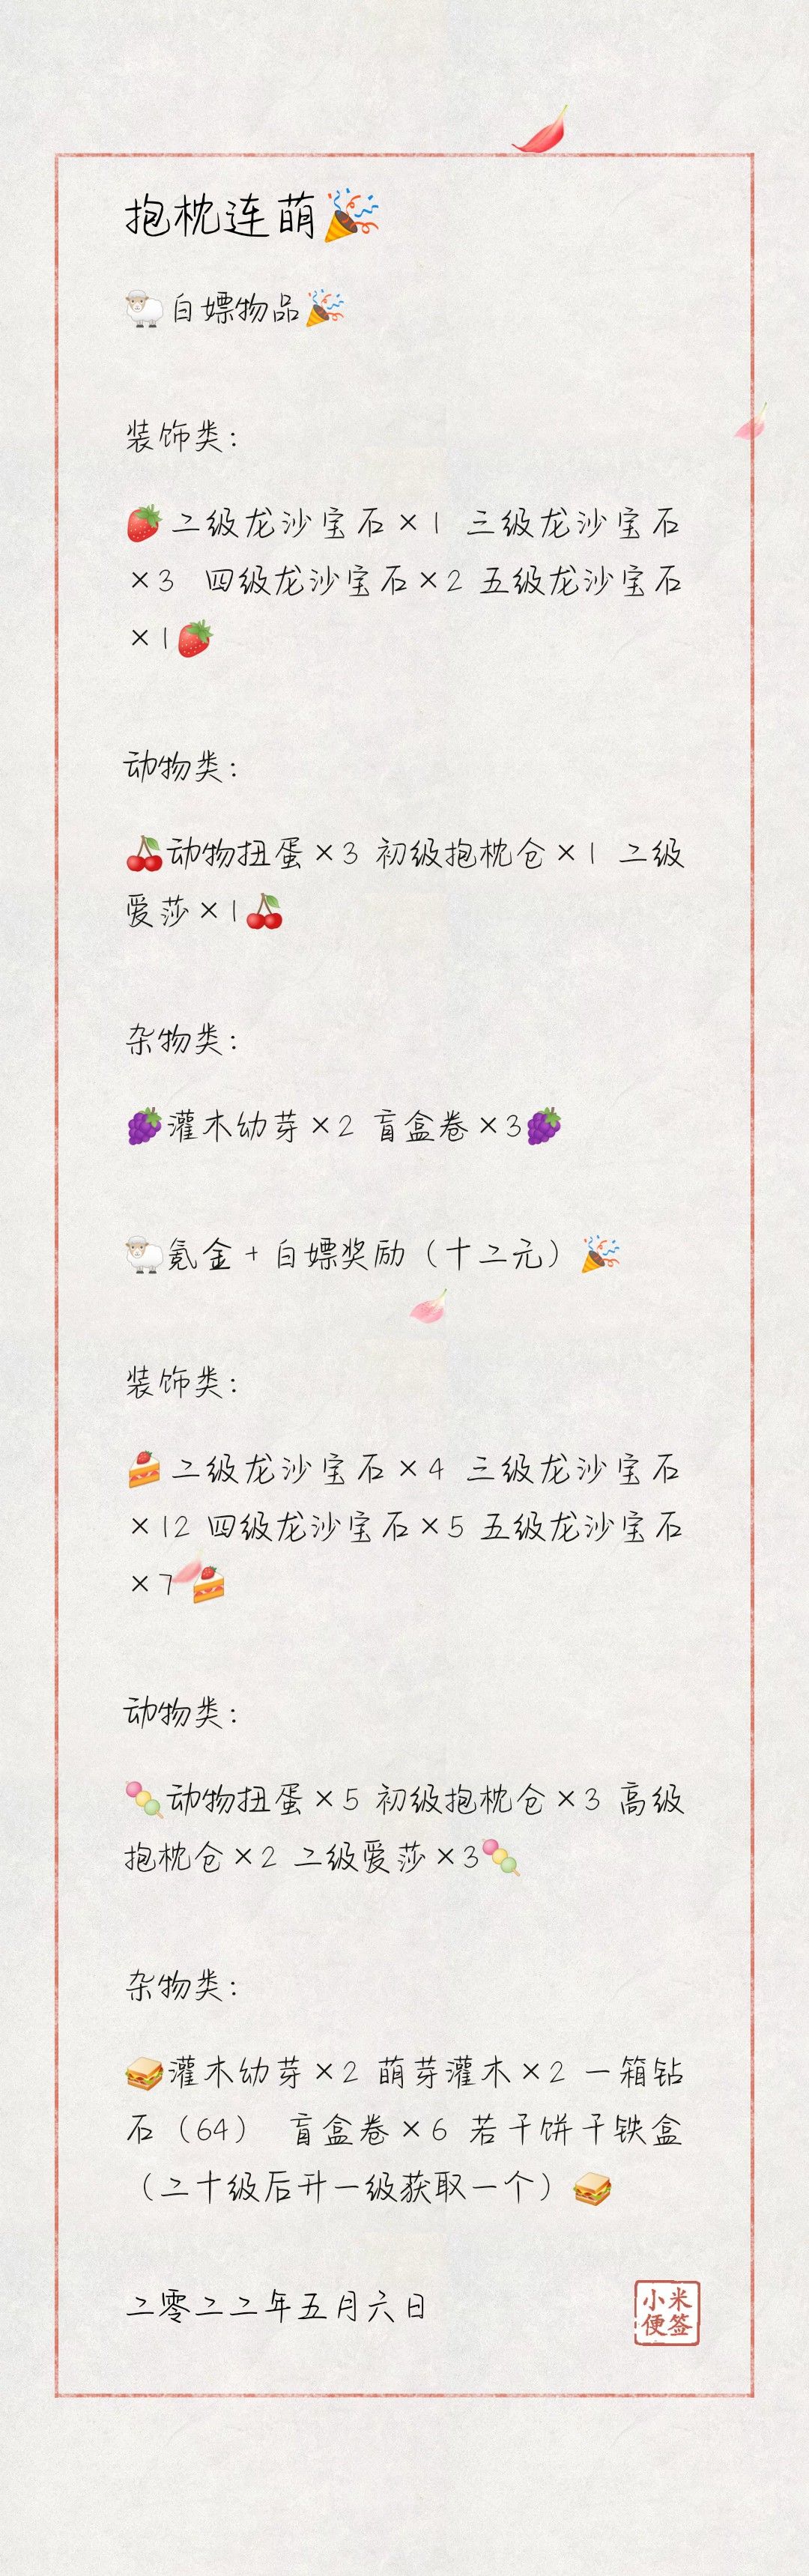 抱枕连萌🎉
🐑白嫖物品🎉
装饰类：
🍓二级龙沙宝石×1 三级龙沙宝石
×3 四级龙沙宝石×2 五级龙沙宝石
×1🍓
动物类：
🍒动物扭蛋×3 初级抱枕仓×1 二级
爱莎×1🍒
杂物类：
🍇灌木幼芽×2 盲盒卷×3🍇
🐑氪金+白嫖奖励（十二元）🎉
装饰类：
🍰二级龙沙宝石×4 三级龙沙宝石
×12 四级龙沙宝石×5 五级龙沙宝石
×7🍰
动物类：
🍡动物扭蛋×5 初级抱枕仓×3 高级
抱枕仓×2 二级爱莎×3🍡
杂物类：
🥪灌木幼芽×2 萌芽灌木×2 一箱钻
石（64） 盲盒卷×6 若干饼干铁盒
（二十级后升一级获取一个）🥪
二零二二年五月六日
小米
便签